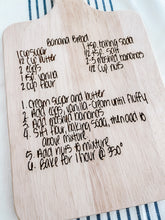 Banana Bread
1 cup sugar
1/2 cup butter
2 eggs
1 tsp vanilla
2 cup flour
1 tsp baking soda
1/2 tsp salt
2-3 mashed bananas
1/2 cup nuts
1. Cream sugar and butter
2. Add eggs, vanilla - Cream until fluffy
3. Add mashed bananas
4. Sift flour, baking soda, then add to
above mixture
5. Add nuts to mixture
6. Bake for 1 hour @ 350°